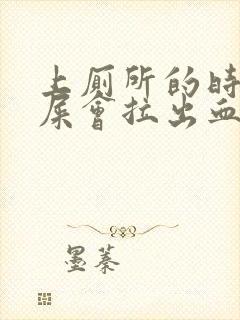 上厕所的时
屎会拉出血
墨蓁